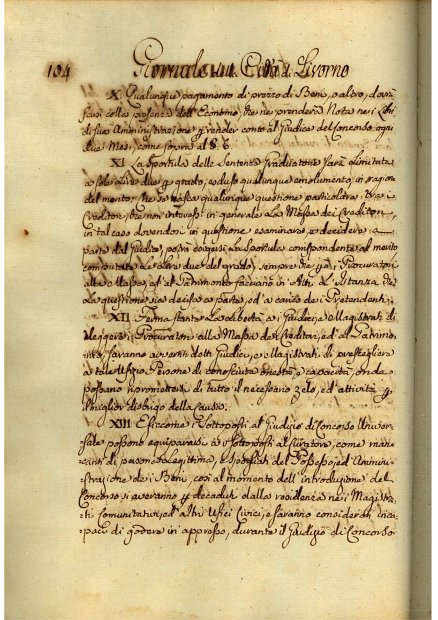 104 Giornale VIII. Città di Livorno
X. Qualunque pagamento di prezzo di Beni, o altro, dovrà
farsi colla presenza dell'Economo, che ne prenderà Nota ne i Libri
di sua Amministrazione e renderà conto al Giudice del Concorso ogni
due Mesi, come sopra al §. 6.
XI. La Sportula delle Sentenze Graduatorie sarà limitata
a sole Lire due p grado, escluso qualunque emolumento in ragion
del merito; che se nasca qualunque questione particolare tra i
Creditori, che non interessi in generale La Massa dei Creditori
in tal caso dovendosi in questione esaminare, e decidere a
parte dal Giudice, potrà esigersi La Sportula corrispondente al merito
computate Le Lire due del grado, sempre che i Procuratori
alla Massa, ed al Patrimonio facciano in Atti L'Istanza che
La questione sia decisa a parte, ed a carico de i Pretendenti.
XII. Ferma stante La libertà a i Giudici, e Magistrati di
eleggere i Procuratori alla Massa de Creditori, ed al Patrimo
nio, saranno avvertiti detti Giudici, e Magistrati di prescegliere
a tale Ufizio Persone di conosciuta onestà, e capacità, onde
possano ripromettersi di tutto il necessario zelo, ed attività p
il miglior disbrigo della Causa.
XIII. E siccome i Sottoposti al Giudizio di Concorso Univer
sale possono equipararsi a i Sottoposti al Curatore, come man
canti di persona Legittima, e spogliati del Possesso, ed Ammini
strazione de i Beni, così al momento dell'introduzione del
Concorso si averanno p decaduti dalla residenza ne i Magistra
ti Comunitativi, ed altri Ufizi Civici, e saranno considerati inca
paci di godere in appresso, durante il Giudizio di Concorso